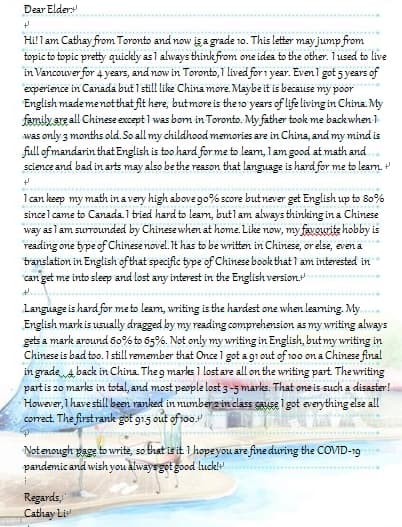 Dear Elder:
Hi! I am Cathay from Toronto and now is a grade 10. This letter may jump from
topic to topic pretty quickly as I always think from one idea to the other. I used to live
in Vancouver for 4 years, and now in Toronto, I lived for 1 year. Even I got 5 years of
experience in Canada but I still like China more. Maybe it is because my poor
English made me not that fit here, but more is the 10 years of life living in China. My
family are all Chinese except I was born in Toronto. My father took me back when I
was only 3 months old. So all my childhood memories are in China, and my mind is
full of mandarin that English is too hard for me to learn, I am good at math and
science and bad in arts may also be the reason that language is hard for me to learn.
I can keep my math in a very high above 90% score but never get English up to 80%
since I came to Canada. I tried hard to learn, but I am always thinking in a Chinese
way as I am surrounded by Chinese when at home. Like now, my favourite hobby is
reading one type of Chinese novel. It has to be written in Chinese, or else, even a
translation in English of that specific type of Chinese book that I am interested in
can get me into sleep and lost any interest in the English version.
Language is hard for me to learn, writing is the hardest one when learning. My
English mark is usually dragged by my reading comprehension as my writing always
gets a mark around 60% to 65%. Not only my writing in English, but my writing in
Chinese is bad too. I still remember that Once I got a 91 out of 100 on a Chinese final
in grade 4 back in China. The 9 marks I lost are all on the writing part. The writing
part is 20 marks in total, and most people lost 3-5 marks. That one is such a disaster!
However, I have still been ranked in number 2 in class cause I got everything else all
correct. The first rank got 91.5 out of 100.
Not enough page to write, so that is it. I hope you are fine during the COVID-19
pandemic and wish you always got good luck!
Regards,
Cathay Li